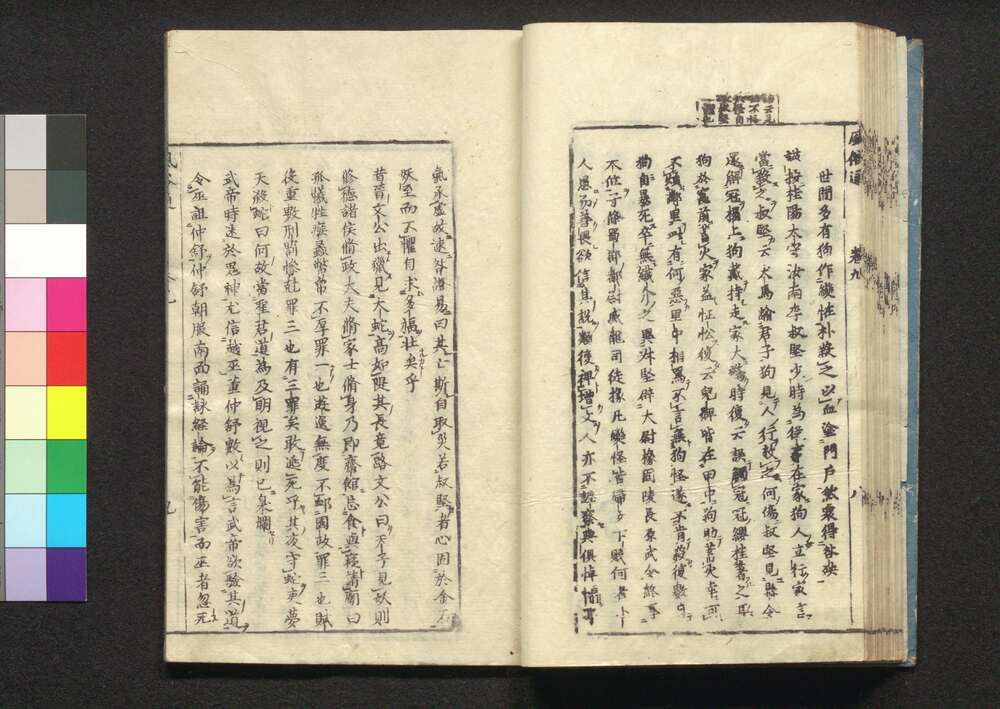 風俗通 卷九 八
世間多有狗作變怪朴殺之以血塗門戸然衆得咎殃
謹按桂陽太守汝南李叔堅少時為從事在家狗人立行家言
當殺之叔堅云犬馬喻君子狗見人行效之何傷叔堅見縣令
還解冠榻上狗戴持走家大驚時復云誤觸冠冠纓挂著之耳
狗於竈前蓄火家益怔忪復云兒婢皆在田中狗助蓄火幸可
不煩鄰里此有何惡里中相罵不言無狗怪遂不肯殺後數日
狗自暴死卒無纖介之異叔堅辟大尉掾固陵長原武令終享
大位子條蜀郡都尉威龍司徒掾凡變怪皆婦女下賤何者小
人愚而善畏欲信其説類復裨增文人亦不證察與俱悼懾邪
氣承虚故速咎證易曰其亡斯自取災若叔堅者心固於金石
妖至而不懼自求多福壯矣乎
昔晉文公出獵見大蛇高如隄其長竟路文公曰天子見妖則
修德諸侯脩政大夫脩家士脩身乃即齋館忘食與寢請廟曰
孤犧牲瘯蠡幣帛不厚罪一也遊逸無度不䘏國政罪三也賦
役重數刑罰慘尅罪三也有三罪矣敢逃死乎其夜守蛇吏夢
天殺蛇曰何故當聖君道為及明視之則已臭爛
武帝時迷於鬼神尤信越巫董仲舒數以為言武帝欲驗其道
令巫詛仲舒仲舒朝服南面誦詠經論不能傷害而巫者忽死